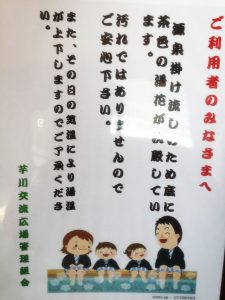 ご利用者のみなさまへ
源泉掛け流しのため底に
茶色の湯花が沈殿してい
ます。
汚れではありませんので
ご安心下さい。
また、その日の気温により湯温
が上下しますのでご了承くださ
い。
芋川交流広場管理組合